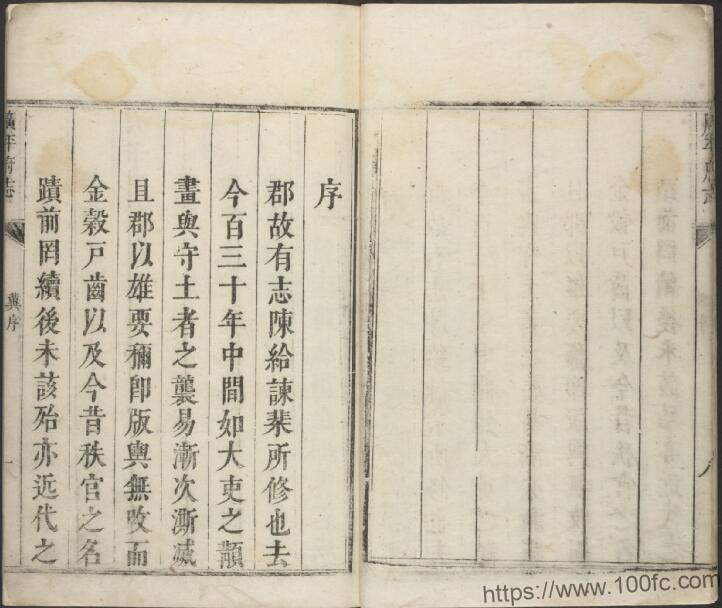 廣平府志
八
序
郡故有志陳給諫棐所修也去
今百三十年中間如大吏之顓
畫與守土者之襲易漸次澌滅
且郡以雄要穪卽版輿無攺而
金穀戸齒以及今昔秩官之名
蹟前罔續後未該殆亦近代之
廣平府志
冀序
一
https://www.100fc.com